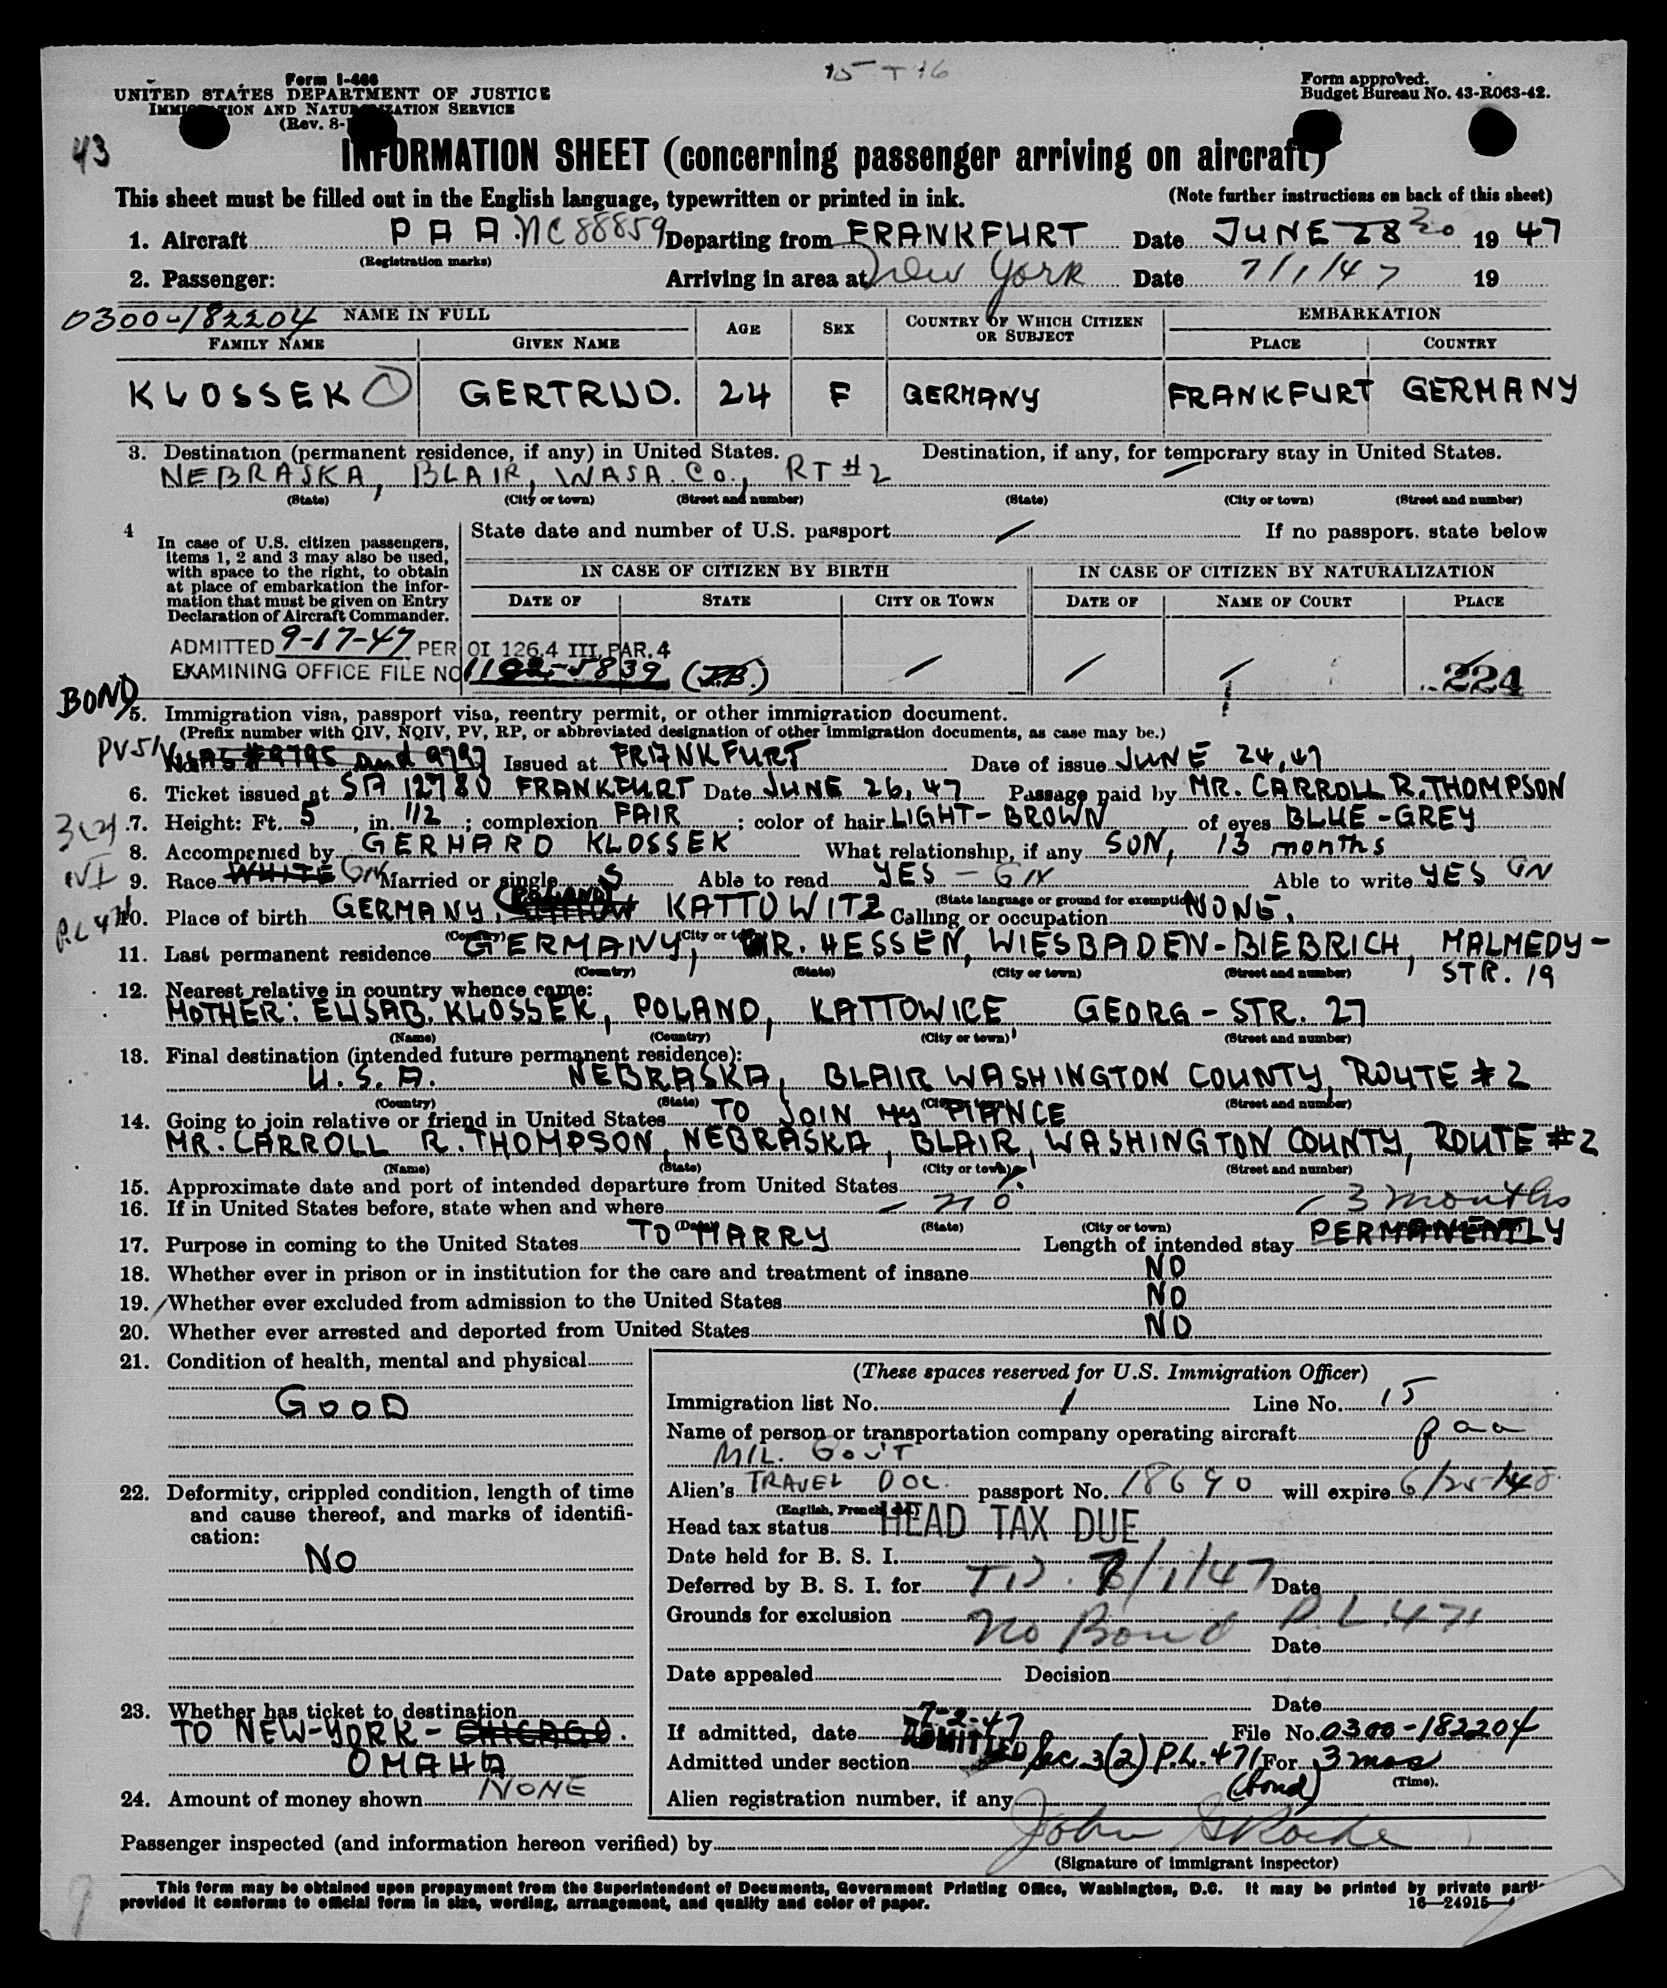 15 T 16
Form I-466
UNITED STATES DEPARTMENT OF JUSTICE
IMMIGRATION AND NATURALIZATION SERVICE
(Rev. 8-
Form approved.
Budget Bureau No. 43-R063-42.
43
INFORMATION SHEET (concerning passenger arriving on aircraft)
This sheet must be filled out in the English language, typewritten or printed in ink.
(Note further instructions on back of this sheet)
1. Aircraft P A A. NC 88859 Departing from FRANKFURT Date JUNE 28 30 19 47
(Registration marks)
2. Passenger: Arriving in area at New York Date 7/1/47 19
0300-182204
NAME IN FULL AGE SEX COUNTRY OF WHICH CITIZEN OR SUBJECT EMBARKATION
FAMILY NAME GIVEN NAME PLACE COUNTRY
KLOSSEK GERTRUD. 24 F GERMANY FRANKFURT GERMANY
3. Destination (permanent residence, if any) in United States. Destination, if any, for temporary stay in United States.
NEBRASKA, BLAIR, WASA. CO., RT #2
(State) (City or town) (Street and number) (State) (City or town) (Street and number)
4 In case of U.S. citizen passengers, items 1, 2 and 3 may also be used, with space to the right, to obtain at place of embarkation the information that must be given on Entry Declaration of Aircraft Commander.
State date and number of U.S. passport If no passport, state below
IN CASE OF CITIZEN BY BIRTH IN CASE OF CITIZEN BY NATURALIZATION
DATE OF STATE CITY OR TOWN DATE OF NAME OF COURT PLACE
ADMITTED 9-17-47 PER OI 126.4 III PAR. 4
EXAMINING OFFICE FILE NO 1102-5839 (J.B.)
224
BOND
5. Immigration visa, passport visa, reentry permit, or other immigration document.
(Prefix number with QIV, NQIV, PV, RP, or abbreviated designation of other immigration documents, as case may be.)
PV51 No. #9795 and 9797 Issued at FRANKFURT Date of issue JUNE 24, 47
6. Ticket issued at SA 12780 FRANKFURT Date JUNE 26, 47 Passage paid by MR. CARROLL R. THOMPSON
3(2) 7. Height: Ft. 5, in. 1/2; complexion FAIR; color of hair LIGHT-BROWN of eyes BLUE-GREY
8. Accompanied by GERHARD KLOSSEK What relationship, if any SON, 13 months
9. Race WHITE Gn Married or single S Able to read YES - Gn Able to write YES Gn
(State language or ground for exemption)
P.L 471
10. Place of birth GERMANY, POLAND KATTOWITZ Calling or occupation NONE.
(Country) (City or town)
11. Last permanent residence GERMANY, GR. HESSEN, WIESBADEN-BIEBRICH, MALMEDY-
STR. 19
(Country) (State) (City or town) (Street and number)
12. Nearest relative in country whence came:
MOTHER: ELISAB. KLOSSEK, POLAND, KATTOWICE GEORG-STR. 27
(Name) (Country) (City or town) (Street and number)
13. Final destination (intended future permanent residence):
U.S.A. NEBRASKA, BLAIR WASHINGTON COUNTY, ROUTE #2
(Country) (State) (City or town) (Street and number)
14. Going to join relative or friend in United States TO JOIN MY FIANCE
MR. CARROLL R. THOMPSON, NEBRASKA, BLAIR, WASHINGTON COUNTY, ROUTE #2
(Name) (State) (City or town) (Street and number)
15. Approximate date and port of intended departure from United States
16. If in United States before, state when and where - no - 3 months
(Date) (State) (City or town)
17. Purpose in coming to the United States TO MARRY Length of intended stay PERMANENTLY
18. Whether ever in prison or in institution for the care and treatment of insane NO
19. Whether ever excluded from admission to the United States NO
20. Whether ever arrested and deported from United States NO
21. Condition of health, mental and physical
GOOD
22. Deformity, crippled condition, length of time and cause thereof, and marks of identification:
NO
23. Whether has ticket to destination
TO NEW-YORK - CHICAGO.
OMAHA
24. Amount of money shown NONE
(These spaces reserved for U.S. Immigration Officer)
Immigration list No. 1 Line No. 15
Name of person or transportation company operating aircraft paa
MIL. GOV'T
Alien's TRAVEL DOC. passport No. 18690 will expire 6/25/48
(English, French, etc.)
Head tax status HEAD TAX DUE
Date held for B. S. I.
Deferred by B. S. I. for T.D. 7/1/47 Date
Grounds for exclusion No Bond P.L. 471
Date
Date appealed Decision
Date
If admitted, date 7-2-47 ADMITTED File No. 0300-182204
Admitted under section Sec 3(2) P.L. 471 For 3 mos
(Time).
(bond)
Alien registration number, if any
Passenger inspected (and information hereon verified) by John
(Signature of immigrant inspector)
This form may be obtained upon prepayment from the Superintendent of Documents, Government Printing Office, Washington, D.C. It may be printed by private parti
provided it conforms to official form in size, wording, arrangement, and quality and color of paper.
16—24915—